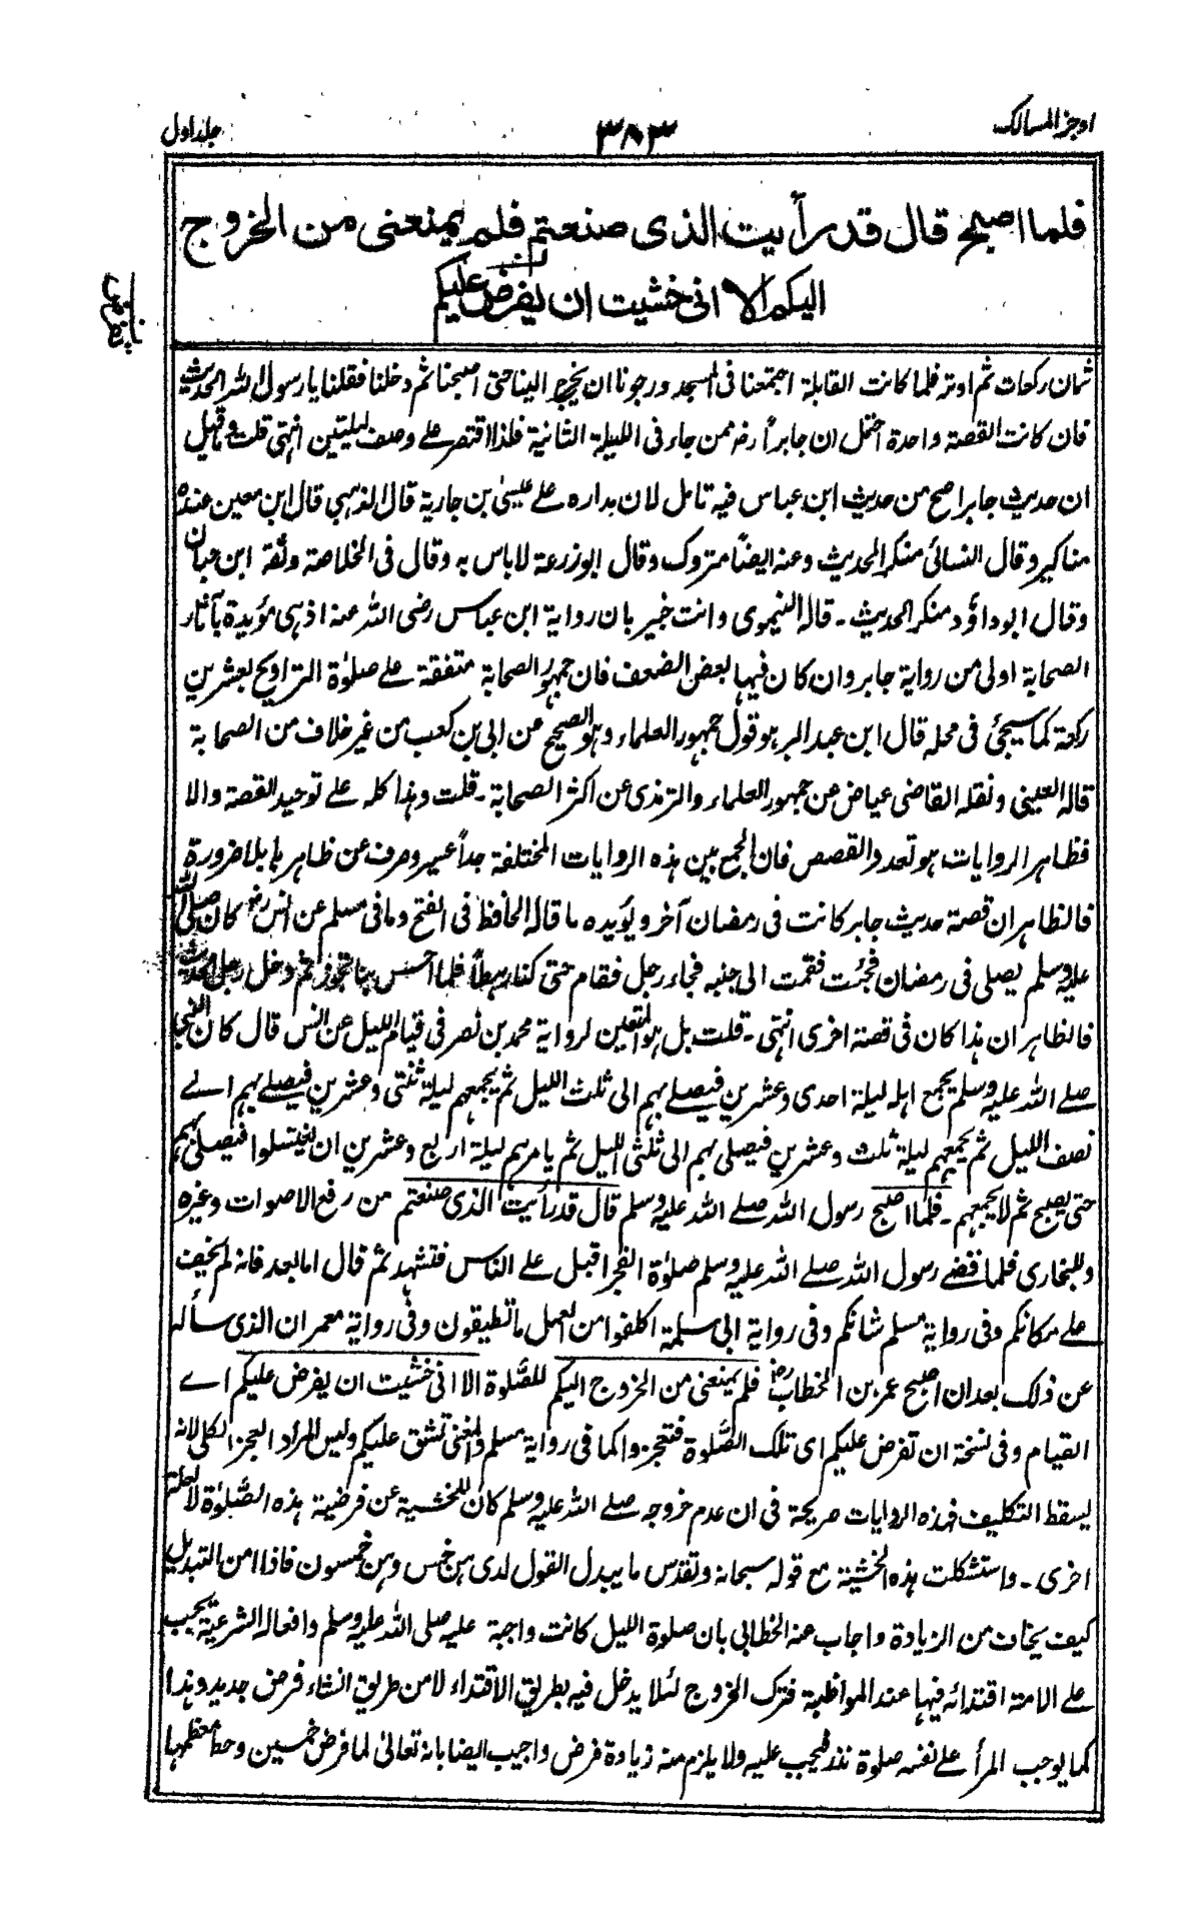 اوجز المسالک
۳۸۳
جلد اول
فلما اصبح قال قد رأيت الذى صنعتم فلم يمنعنى من الخروج
اليكم الا انى خشيت ان يفرض عليكم
ثمان ركعات ثم اوتر فلما كانت القابلة اجتمعنا فى المسجد ورجونا ان يخرج الينا حتى اصبحنا ثم دخلنا فقلنا يا رسول الله الحديث
فان كانت القصة واحدة احتمل ان جابراً رض ممن جاء فى الليلة الثانية فلذا اقتصر على وصف ليلتين انتهى قلت وقيل
ان حديث جابر اصح من حديث ابن عباس فيه تامل لان مداره على عيسىٰ بن جارية قال الذهبى قال ابن معين عنده
مناكير وقال النسائى منكر الحديث وعنه ايضاً متروك وقال ابو زرعة لا باس به وقال فى الخلاصة وثقه ابن حبان
وقال ابو داؤد منكر الحديث ۔ قاله النيموى وانت خبير بان رواية ابن عباس رضى الله عنه اذ هى مؤيدة بآثار
الصحابة اولى من رواية جابر وان كان فيها بعض الضعف فان جمهور الصحابة متفقة على صلوٰة التراويح بعشرين
ركعة كما سيجئ فى محله قال ابن عبد البر هو قول جمهور العلماء وهو الصحيح عن ابى بن كعب من غير خلاف من الصحابة
قاله العينى ونقله القاضى عياض عن جمهور العلماء والترمذى عن اكثر الصحابة ۔ قلت وهذا كله على توحيد القصة والا
فظاهر الروايات هو تعدد القصص فان الجمع بين هذه الروايات المختلفة جداً عسير وصرف عن ظاهرها بلا ضرورة
فالظاهر ان قصة حديث جابر كانت فى رمضان آخر ويؤيده ما قاله الحافظ فى الفتح وما فى مسلم عن انس رض كان صلى الله
عليه وسلم يصلى فى رمضان فجئت فقمت الى جنبه فجاء رجل فقام حتى كنا رهطاً فلما احس بنا تجوز ثم دخل رحله الحديث
فالظاهر ان هذا كان فى قصة اخرى انتهى ۔ قلت بل هو المتعين لرواية محمد بن نصر فى قيام الليل عن انس قال كان النبى
صلى الله عليه وسلم يجمع اهله ليلة احدى وعشرين فيصلى بهم الى ثلث الليل ثم يجمعهم ليلة ثنتى وعشرين فيصلى بهم الى
نصف الليل ثم يجمعهم ليلة ثلث وعشرين فيصلى بهم الى ثلثى الليل ثم يامرهم ليلة اربع وعشرين ان يغتسلوا فيصلى بهم
حتى يصبح ثم لا يجمعهم ۔ فلما اصبح رسول الله صلى الله عليه وسلم قال قد رأيت الذى صنعتم من رفع الاصوات وغيره
وللبخارى فلما قضى رسول الله صلى الله عليه وسلم صلوٰة الفجر اقبل على الناس فتشهد ثم قال اما بعد فانه لم يخف
على مكانكم وفى رواية مسلم شانكم وفى رواية ابى سلمة اكلفوا من العمل ما تطيقون وفى رواية معمر ان الذى سأله
عن ذلك بعد ان اصبح عمر بن الخطاب رض فلم يمنعنى من الخروج اليكم للصلوة الا انى خشيت ان يفرض عليكم اے
القيام وفى نسخة ان تفرض عليكم اى تلك الصلوة فتعجزوا كما فى رواية مسلم والمعنى تشق عليكم وليس المراد العجز الكلى لانه
يسقط التكليف فهذه الروايات صريحة فى ان عدم خروجه صلى الله عليه وسلم كان للخشية عن فرضية هذه الصلوٰة لا لعلة
اخرى ۔ واستشكلت هذه الخشية مع قوله سبحانه وتقدس ما يبدل القول لدى هن خمس وهن خمسون فاذا امن التبديل
كيف يخاف من الزيادة واجاب عنه الخطابى بان صلوة الليل كانت واجبة عليه صلى الله عليه وسلم وافعاله الشرعية يجب
على الامة اقتدائه فيها عند المواظبة فترك الخروج لئلا يدخل فيه بطريق الاقتداء لا من طريق انشاء فرض جديد وهذا
كما يوجب المرأ على نفسه صلوة نذر فيجب عليه ولا يلزم منه زيادة فرض واجيب ايضا بانه تعالىٰ لما فرض خمسين وحط معظمها